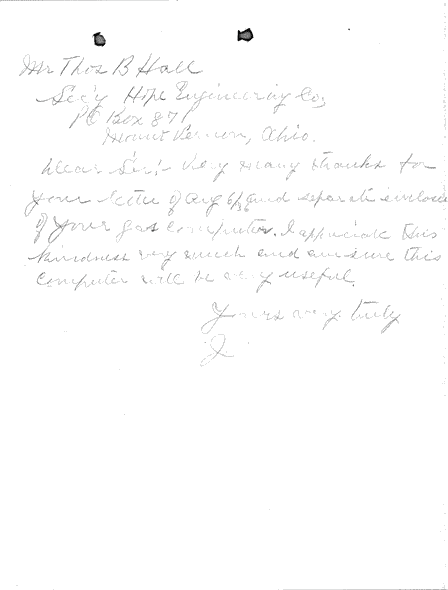 Mr Thos B Hall
Sec'y Hope Engineering Co,
PO Box 871
Mount Vernon, Ohio.
Dear Sir:- Very many thanks for
your letter of Aug 6/36 and separate enclosure
of your gas computer. I appreciate this
kindness very much and am sure this
computer will be very useful.
Yours very truly
J